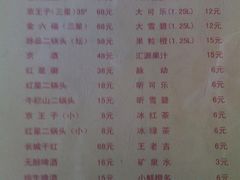 京王子(三星)38° 68元 大可乐(1.29L) 12元
金六福(三星) 68元 大雪碧(1.25L) 12元
二锅头(坛) 58元 果粒橙(1.25L) 15元
京酒 48元 汇源果汁 15元
红星 38元 脉动 6元
红星二锅头 15元 听可乐 6元
牛栏山二锅头 15元 听雪碧 6元
京王子(小) 8元 冰红茶 6元
红星二锅头(小) 8元 冰绿茶 6元
长城干红 68元 王老吉 6元
无醇啤酒 10元 矿泉水 3元
啤酒